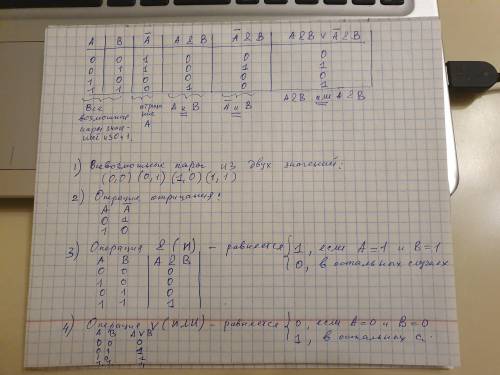 A | B | Ā | A & B | Ā & B | A & B ∨ Ā & B
0 | 0 | 1 | 0 | 0 | 0
0 | 1 | 1 | 0 | 1 | 1
1 | 0 | 0 | 0 | 0 | 0
1 | 1 | 0 | 1 | 0 | 1
Все возможные пары из 0 и 1
отрицание A
A и B
Ā и B
A & B или Ā & B
1) Всевозможные пары из двух значений:
(0,0) (0,1) (1,0) (1,1)
2) Операция отрицания:
A Ā
0 1
1 0
3) Операция & (И) - равняется { 1, если A=1 и B=1
0, в остальных случаях
A B | A & B
0 0 | 0
1 0 | 0
0 1 | 0
1 1 | 1
4) Операция V (ИЛИ) - равняется { 0, если A=0 и B=0
1, в остальных с.
A B A∨B
0 0 0